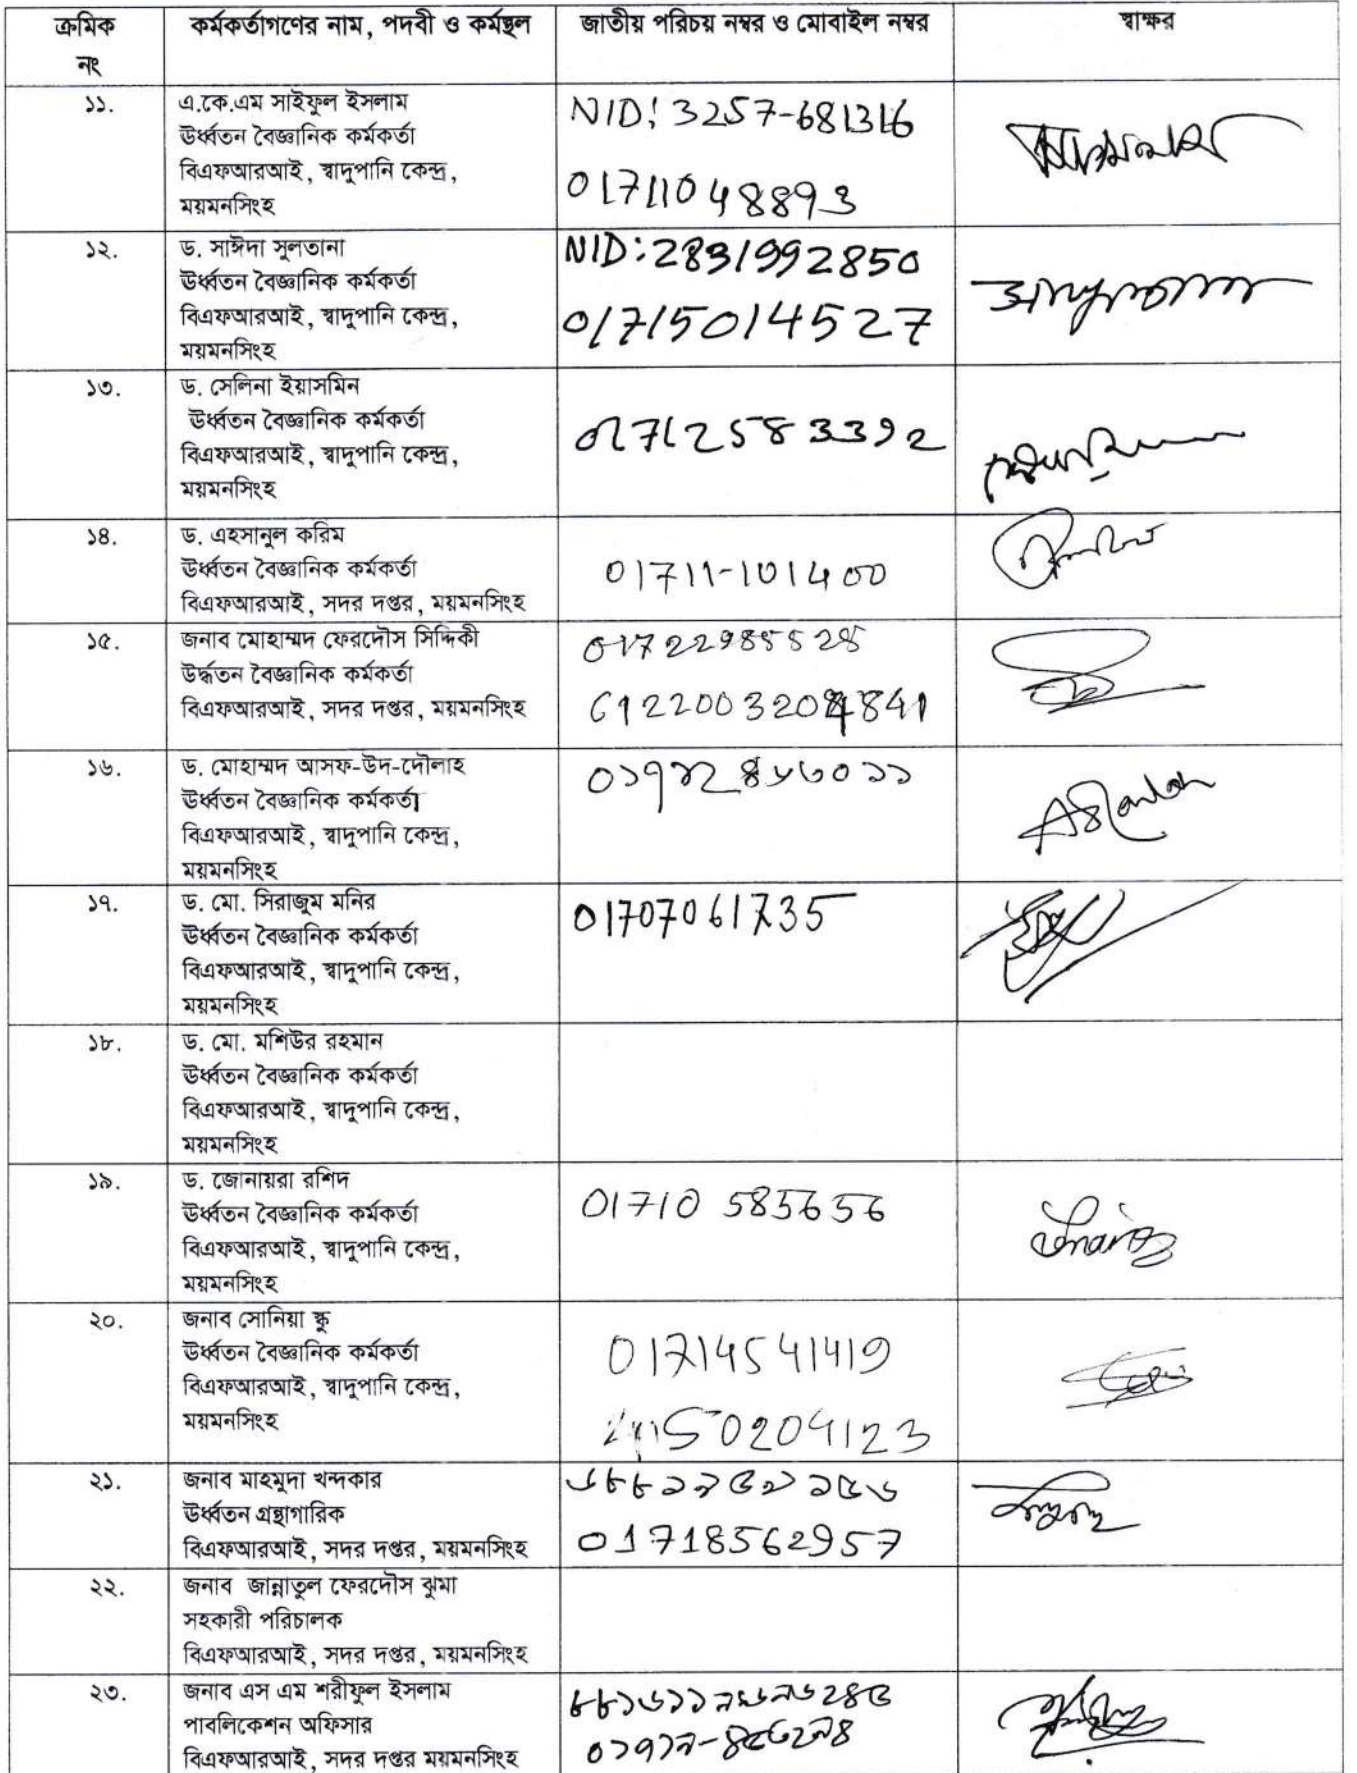 ক্রমিক নং কর্মকর্তাগণের নাম, পদবী ও কর্মস্থল জাতীয় পরিচয় নম্বর ও মোবাইল নম্বর স্বাক্ষর
১১. এ.কে.এম সাইফুল ইসলাম
ঊর্ধ্বতন বৈজ্ঞানিক কর্মকর্তা
বিএফআরআই, স্বাদুপানি কেন্দ্র,
ময়মনসিংহ
NID: 3257-681316
01711048893
১২. ড. সাঈদা সুলতানা
ঊর্ধ্বতন বৈজ্ঞানিক কর্মকর্তা
বিএফআরআই, স্বাদুপানি কেন্দ্র,
ময়মনসিংহ
NID: 2831992850
01715014527
১৩. ড. সেলিনা ইয়াসমিন
ঊর্ধ্বতন বৈজ্ঞানিক কর্মকর্তা
বিএফআরআই, স্বাদুপানি কেন্দ্র,
ময়মনসিংহ
01712583392
১৪. ড. এহসানুল করিম
ঊর্ধ্বতন বৈজ্ঞানিক কর্মকর্তা
বিএফআরআই, সদর দপ্তর, ময়মনসিংহ
01711-101400
১৫. জনাব মোহাম্মদ ফেরদৌস সিদ্দিকী
উর্দ্ধতন বৈজ্ঞানিক কর্মকর্তা
বিএফআরআই, সদর দপ্তর, ময়মনসিংহ
১৬. ড. মোহাম্মদ আসফ-উদ-দৌলাহ
ঊর্ধ্বতন বৈজ্ঞানিক কর্মকর্তা
বিএফআরআই, স্বাদুপানি কেন্দ্র,
ময়মনসিংহ
১৭. ড. মো. সিরাজুম মনির
ঊর্ধ্বতন বৈজ্ঞানিক কর্মকর্তা
বিএফআরআই, স্বাদুপানি কেন্দ্র,
ময়মনসিংহ
01707061735
১৮. ড. মো. মশিউর রহমান
ঊর্ধ্বতন বৈজ্ঞানিক কর্মকর্তা
বিএফআরআই, স্বাদুপানি কেন্দ্র,
ময়মনসিংহ
১৯. ড. জোনায়রা রশিদ
ঊর্ধ্বতন বৈজ্ঞানিক কর্মকর্তা
বিএফআরআই, স্বাদুপানি কেন্দ্র,
ময়মনসিংহ
01710 585656
২০. জনাব সোনিয়া স্কু
ঊর্ধ্বতন বৈজ্ঞানিক কর্মকর্তা
বিএফআরআই, স্বাদুপানি কেন্দ্র,
ময়মনসিংহ
01714541419
২১. জনাব মাহমুদা খন্দকার
ঊর্ধ্বতন গ্রন্থাগারিক
বিএফআরআই, সদর দপ্তর, ময়মনসিংহ
01718562957
২২. জনাব জান্নাতুল ফেরদৌস ঝুমা
সহকারী পরিচালক
বিএফআরআই, সদর দপ্তর, ময়মনসিংহ
২৩. জনাব এস এম শরীফুল ইসলাম
পাবলিকেশন অফিসার
বিএফআরআই, সদর দপ্তর ময়মনসিংহ